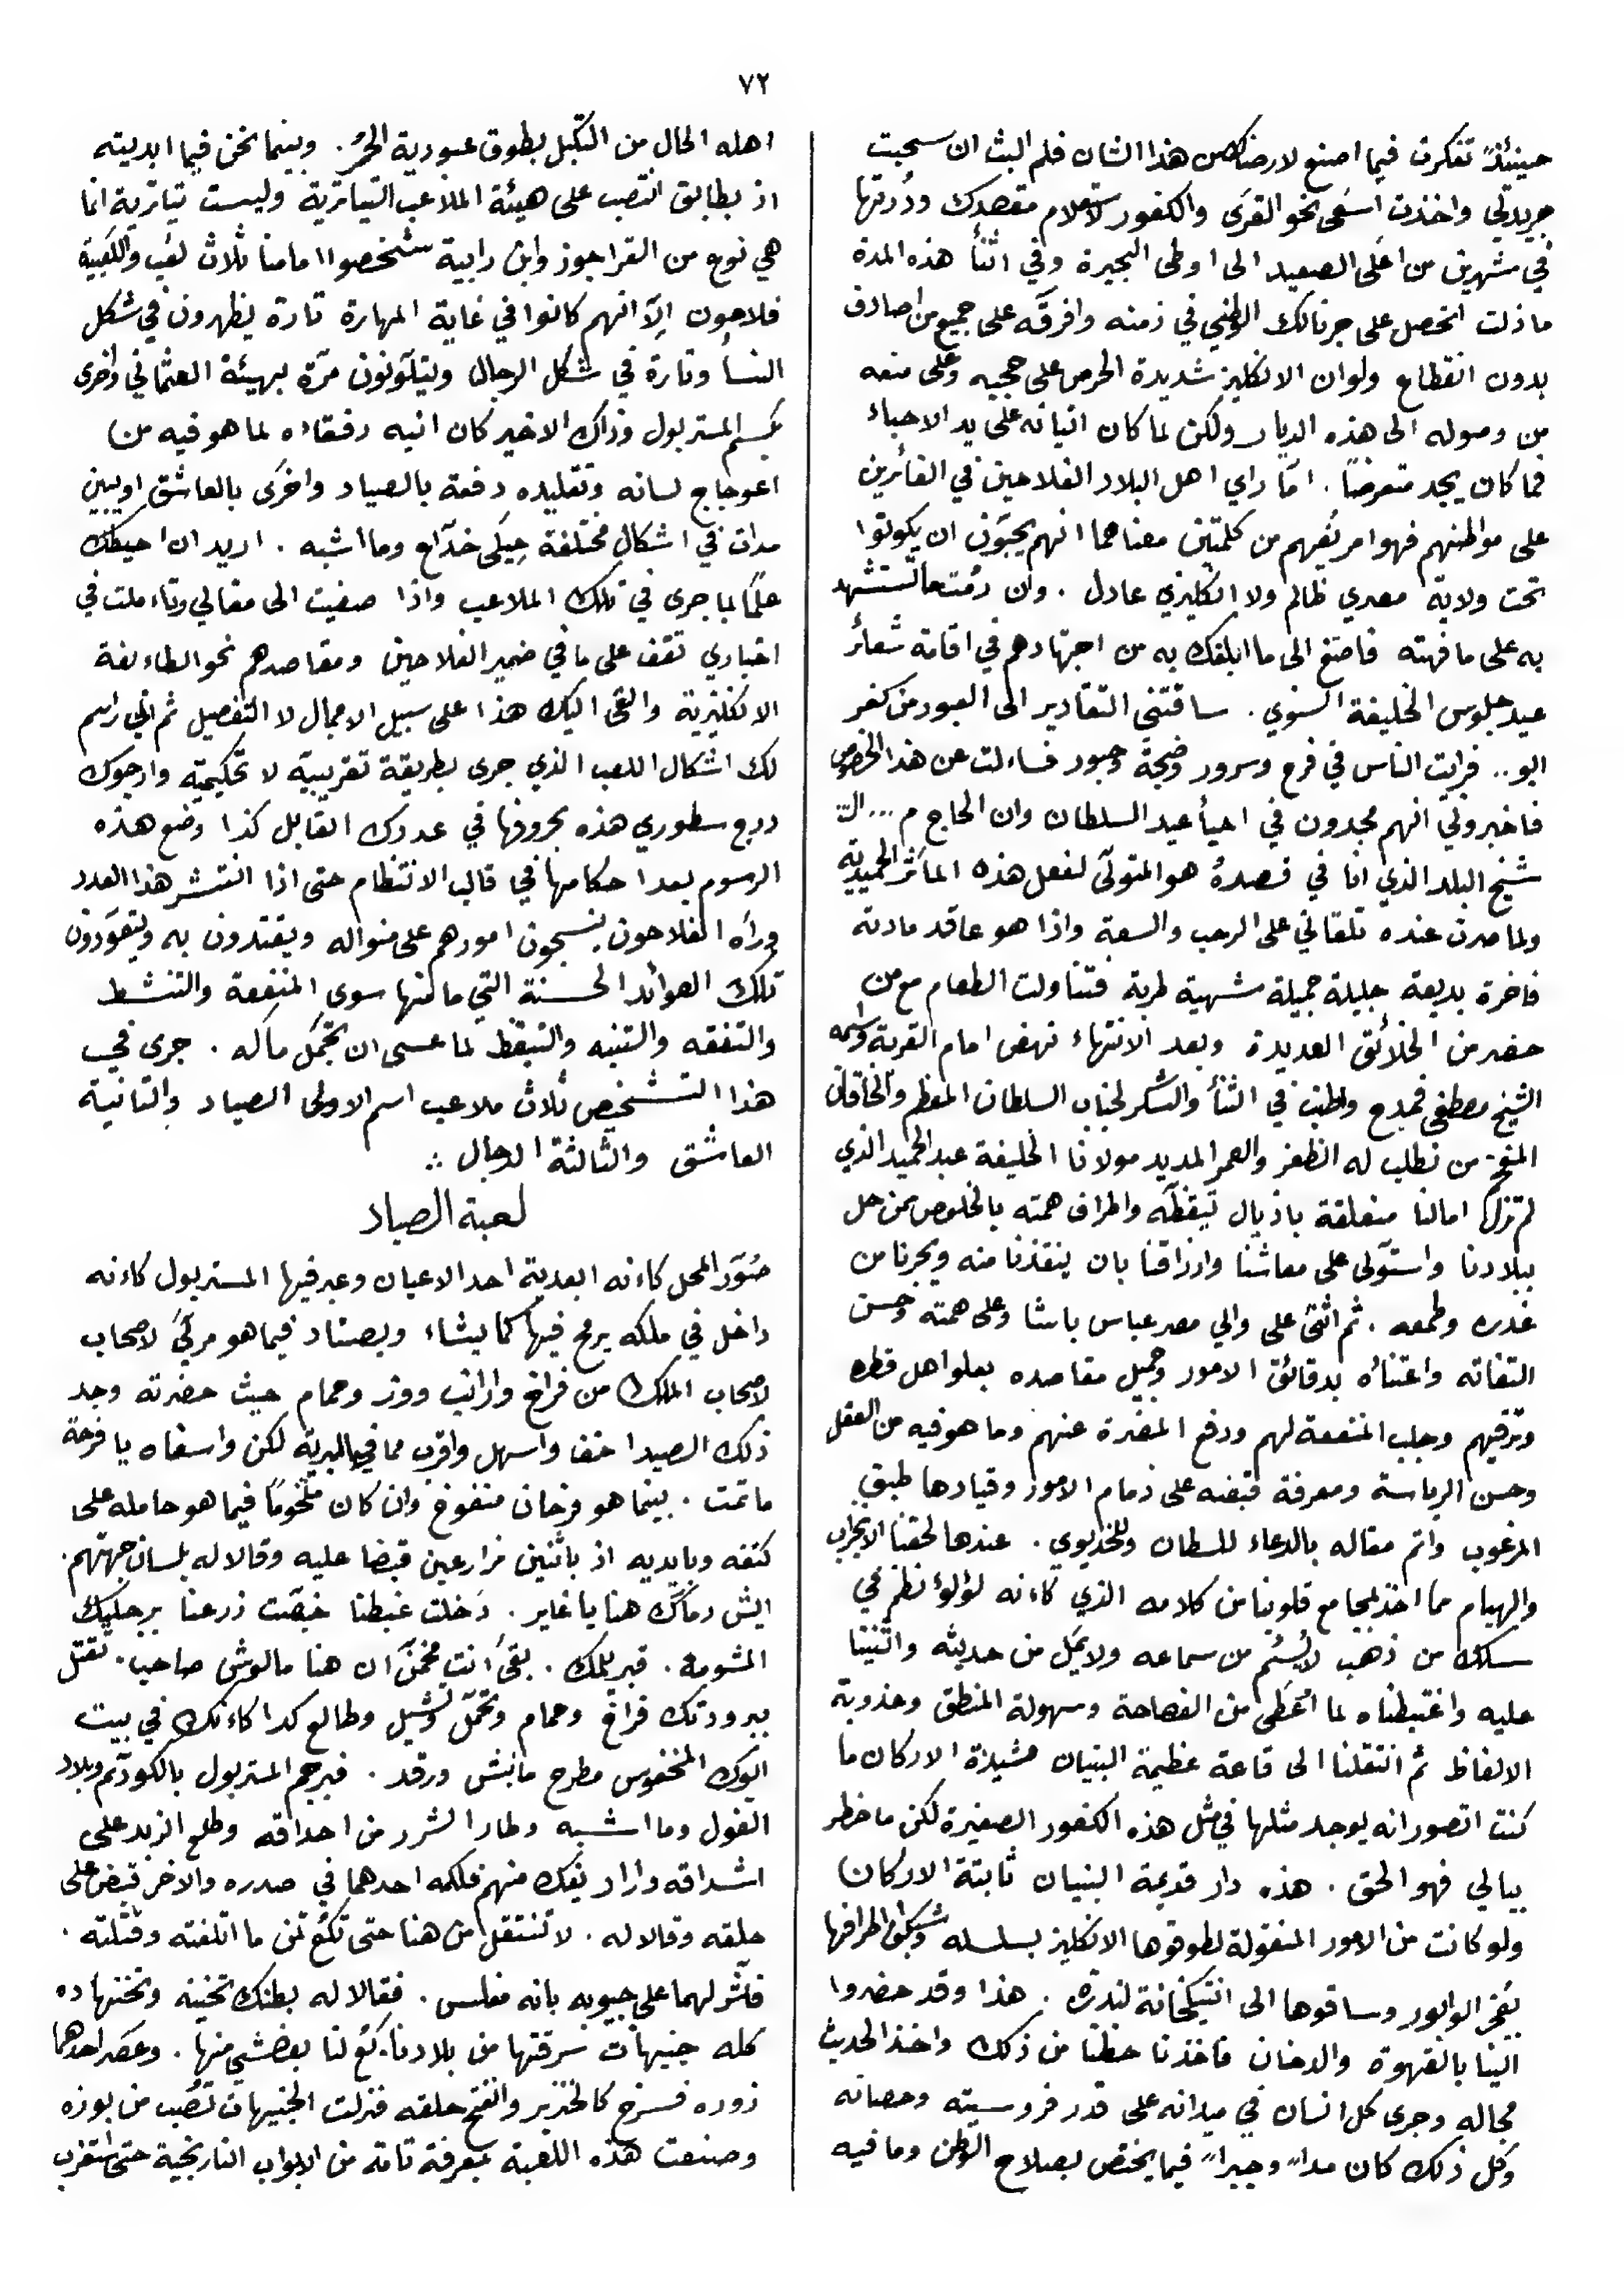 ٧٢
حينئذ تفكرت فيما اصنع لارضاك من هذا الشان فلم البث ان سحبت
جريدتي واخذت اسعى نحو القرى والكفور لاستعلام مقصدك ودُرتها
في شهرين من اعلى الصعيد الى اوطى البحيرة وفي اثنأ هذه المدة
ما زلت اتحصل على جرنالك الوطني في زمنه وافرقه على جميع من اصادف
بدون انقطاع ولوان الانكليز شديدة الحرص على حجبه وعلى منعه
من وصوله الى هذه الديار ولكن لما كان اتيانه على يد الاحباء
فما كان يجد متعرضاً . امّا راي اهل البلاد الفلاحين في القائرين
على مواطنهم فهو امر يُفهم من كلمتين معناهما انهم يحبّون ان يكونوا
تحت ولاية مصري ظالم ولا انكليزي عادل . وان رُمت ما تستشهد
به على ما فهته فاصغ الى ما ابلغك به من اجتهادهم في اقامة شعائر
عيد جلوس الخليفة السنوي . ساقتني التقادير الى العبور من كفر
ابو .. فرايت الناس في فرح وسرور وضجة وحبور فساءلت عن هذا الخصوص
فاخبروني انهم مجدون في احيأ عيد السلطان وان الحاج م ...
شيخ البلد الذي انا في قصده هو المتولّى لفعل هذه المآثر الحميدية
ولما صرت عنده تلقاني على الرحب والسعة واذا هو عاقد مادبة
فاخرة بديعة جليلة جميلة شهية طربة فتناولت الطعام مع من
حضر من الخلائق العديدة وبعد الانتهاء نهض امام القرية واسمه
الشيخ مصطفى فمدح واطنب في الثنأ والشكر لجناب السلطان المعظم والخاقان
المفخم من نطلب له الظفر والعمر المديد مولانا الخليفة عبد الحميد الذي
لم تزل امالنا متعلقة باذيال تيقظه واطراف همته بالخلوص ممن حل
ببلادنا واستولى على معاشنا وارزاقنا بان ينقذنا منه ويجرنا من
غدره وطمعه . ثم اثنى على والي مصر عباس باشا وعلى همته وحسن
التفاته واعتنائه بدقائق الامور وجميل مقاصده بعلو اهل قطره
وترقيهم وجلب المنفعة لهم ودفع المضرة عنهم وما هو فيه من العقل
وحسن الرياسة ومعرفة قبضه على زمام الامور وقيادها طبق
المرغوب واتم مقاله بالدعاء للسلطان وللخديوي . عندها لحقنا الانجذاب
والهيام مما اخذ بمجامع قلوبنا من كلامه الذي كاءنه لؤلؤ نظم في
سلك من ذهب لا يُسئم من سماعه ولا يَمَل من حديثه واثنينا
عليه واغتبطناه لما أعْطَى من الفصاحة وسهولة المنطق وعذوبة
الالفاظ ثم انتقلنا الى قاعة عظيمة البنيان مشيدة الاركان ما
كنت اتصور انه يوجد مثلها في مثل هذه الكفور الصغيرة لكن ما خطر
ببالي فهو الحق . هذه دار قديمة البنيان ثابتة الاركان
ولو كانت من الامور المنقولة لطوقوها الانكليز بسلسله وشبكوا اطرافها
بفخر الوابور وساقوها الى انتيكخانة لندره . هذا وقد حضروا
الينا بالقهوة والدخان فاخذنا حظنا من ذلك واخذ الحديث
مجاله وجرى كل انسان في ميدانه على قدر فروسيته وحصانه
وكل ذلك كان مداً وجيراً فيما يختص بصلاح الوطن وما فيه
اهله الحال من التكبل بطوق عبودية الحمر . وبينما نحن فيما ابديته
اذ بطابق انتصب على هيئة الملاعب التياترية وليست تياترية انما
هي نوع من القراجوز وابن رابية شخصوا امامنا ثلاث لعَب واللعّيبة
فلاحون الاّ انهم كانوا في غاية المهارة تارة يظهرون في شكل
النسأ وتارة في شكل الرجال ويتلوّنون مرّة بهيئة العثماني واخرى
بجسم المستر بول وذاك الاخير كان انيه رفقاءه لما هو فيه من
اعوجاج لسانه وتقليده دفعة بالصياد واخرى بالعاشق اويبين
مرات في اشكال مختلفة حِيَلي خدّاع وما اشبه . اريد ان احيطك
علمًا لما جرى في تلك الملاعب واذا صغيت الى مقالي وتاءملت في
اخباري تقف على ما في ضمير الفلاحين ومقاصدهم نحو الطاءيفة
الانكليزية والقي اليك هذا على سبيل الاجمال لا التفصيل ثم اني راسم
لك اشكال اللعب الذي جرى بطريقة تقريبية لا تحكيميّة وارجوك
درج سطوري هذه بحروفها في عددك القابل كذا وضع هذه
الرسوم بعد احكامها في قالب الانتظام حتى اذا انتشر هذا العدد
ورأه الفلاحون ينسجون امورهم على منواله ويقتدون به ويتعوّدون
تلك العوائد الحسنة التي ما منها سوى المنفعة والتنشط
والتفقه والتنبه والتيقظ لما عسى ان تجمل مآله . جرى في
هذا التشخيص ثلاث ملاعب اسم الاولى الصياد والثانية
العاشق والثالثة الدجال ∴
لعبة الصياد
صُوّر المحل كاءنه ابعدية احد الاعيان وعبر فيها المستر بول كاءنه
داخل في ملكه يرمح فيها كما يشاء ويصتاد فيما هو مربّى لاصحاب
لاصحاب الملك من فراخ وارانب ووز وحمام حيث حضرته وجد
ذلك الصيد اخف واسهل واقرب مما في البرية لكن واسفاه يا فرحة
ما تمت . بينما هو فرحان منفوخ وان كان متخومًا فيما هو حامله على
كتفه وبايديه اذ باثنين مزارعين قبضا عليه وقالا له بلسان جهتهم .
ايش رماك هنا يا غاير . دَخلت غيطنا خبّصت زرعنا برجليك
المشومة . قبر يلمك . بقىَ انت مخمّن ان هنا مالوش صاحب . تقتل
ببرودتك فراخ وحمام وتحمّل وتشيل وطالع كدا كاءنك في بيت
ابوك المخفوس مطرح ما بنش ورقد . فبرجم المستر بول بالكودّم وبلاد
الفول وما اشبه وطار الشرر من احداقه وطلع الزبد على
اشداقه واراد يفك منهم فلكمه احدهما في صدره والاخر قبض على
حلقه وقالا له . لا تنتقل من هنا حتى تكُع تمن ما اتلفته وقتلته .
فاشّر لهما على جيوبه بانه مفلس . فقالا له بطنك تخينه وتخنها ده
كله جنيهات سرقتها من بلادنا كُع لنا بعض شي منها . وعصر احدهما
زوره فسرخ كالخنزير وانفتح حلقه فنزلت الجنيهات تصُب من بوزه
وصنعت هذه اللعبة بمعرفة تامة من الابواب النارنجية حتى استغرب